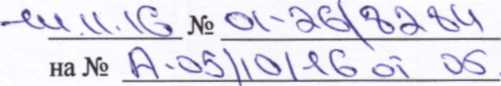 11.16 № 01-26/8284
на № А-05/10/16 от 05.